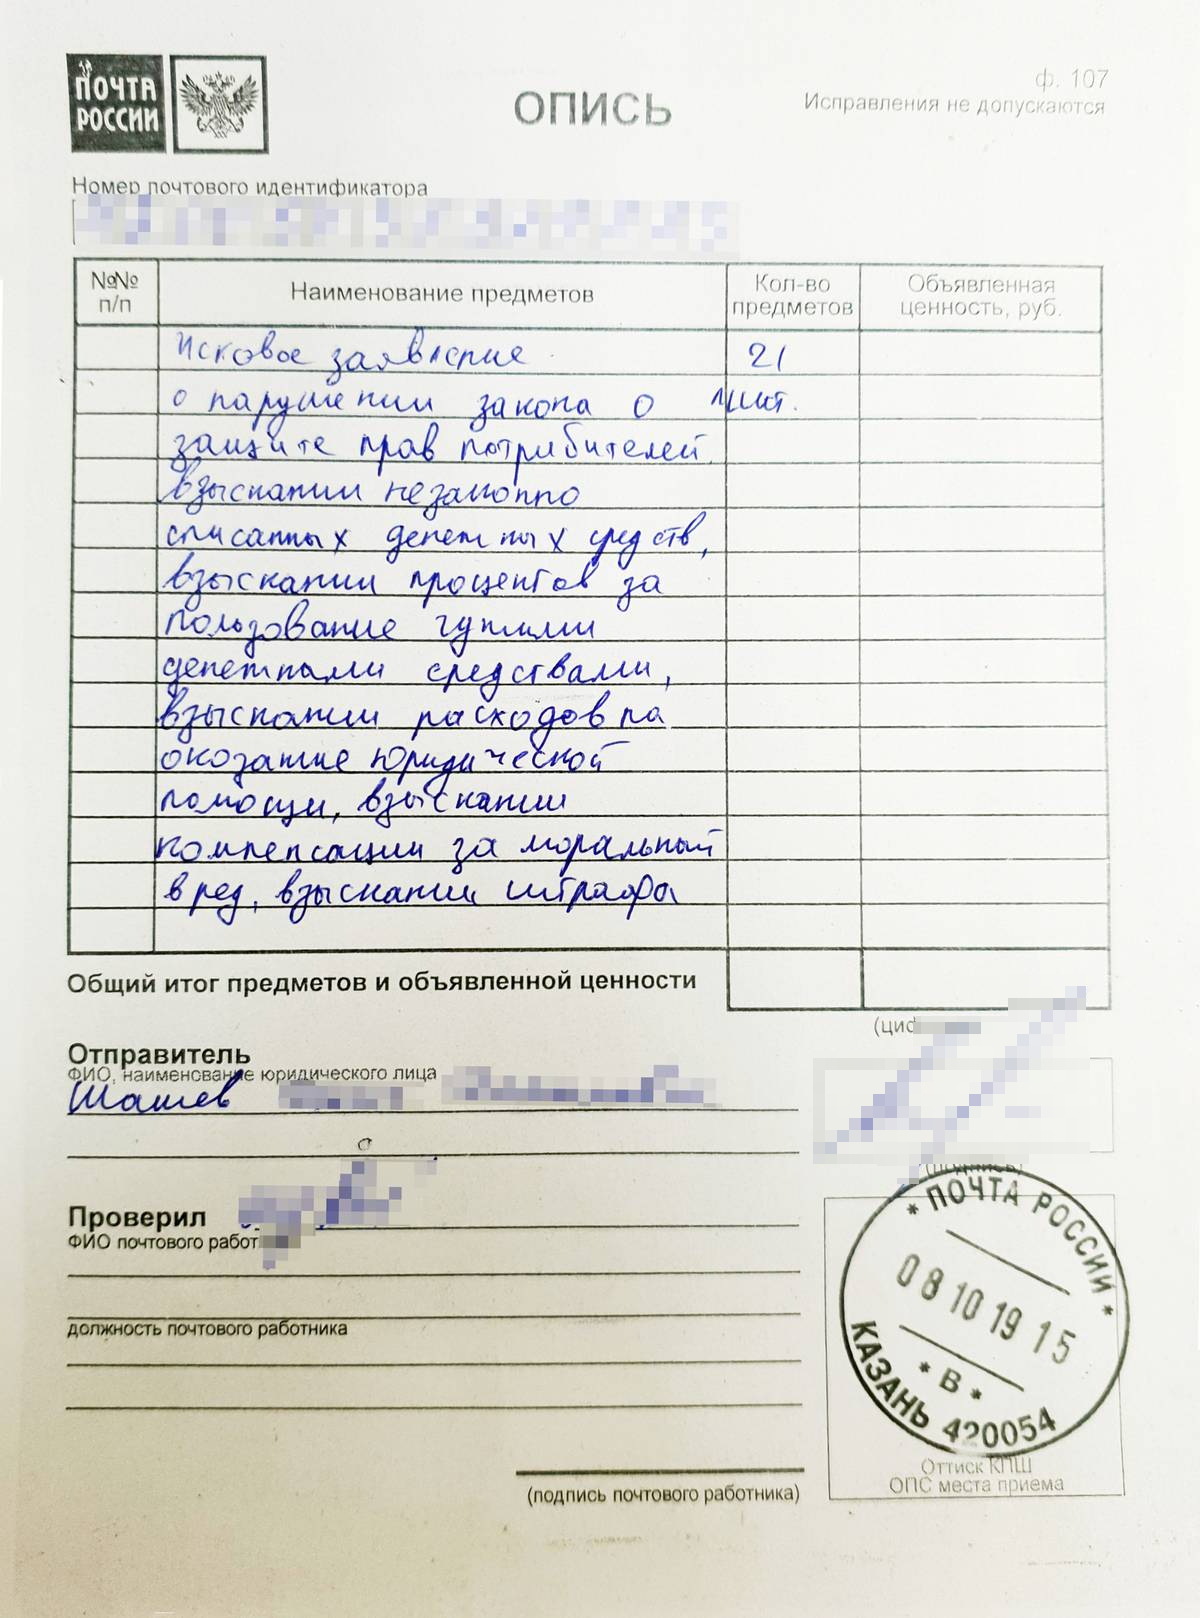 ПОЧТА
РОССИИ
ОПИСЬ
ф. 107
Исправления не допускаются
Номер почтового идентификатора
№№ п/п
Наименование предметов
Кол-во предметов
Объявленная ценность, руб.
Исковое заявление 21
о нарушении закона о лист.
защите прав потребителей,
взыскании незаконно
списанных денежных средств,
взыскании процентов за
пользование чужими
денежными средствами,
взыскании расходов на
оказание юридической
помощи, взыскании
компенсации за моральный
вред, взыскании штрафа
Общий итог предметов и объявленной ценности
(циф
Отправитель
ФИО, наименование юридического лица
Шашев
(подпись)
Проверил
ФИО почтового работ
должность почтового работника
(подпись почтового работника)
* ПОЧТА РОССИИ *
08 10 19 15
* В *
КАЗАНЬ 420054
Оттиск КПШ
ОПС места приема